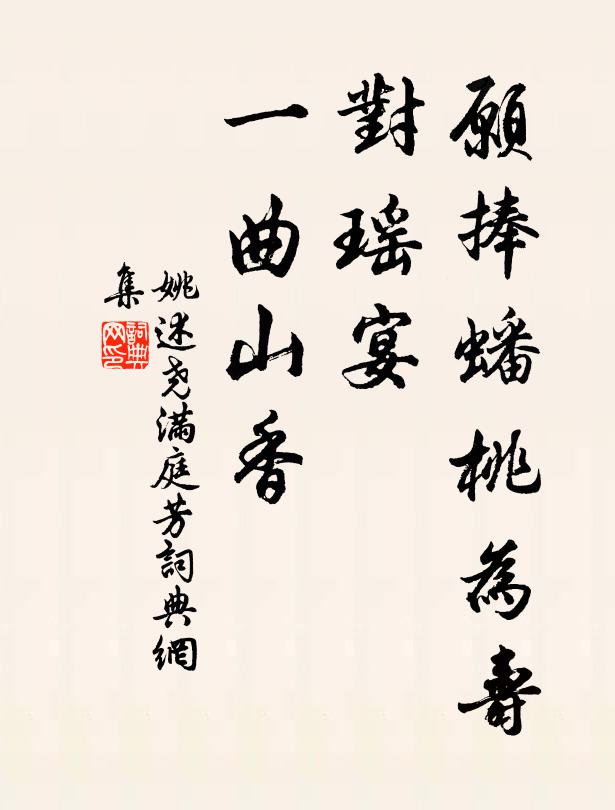 願捧蟠桃為壽
對瑶宴
一曲山香
姚述尧滿庭芳詞典網
集
詞典
网印